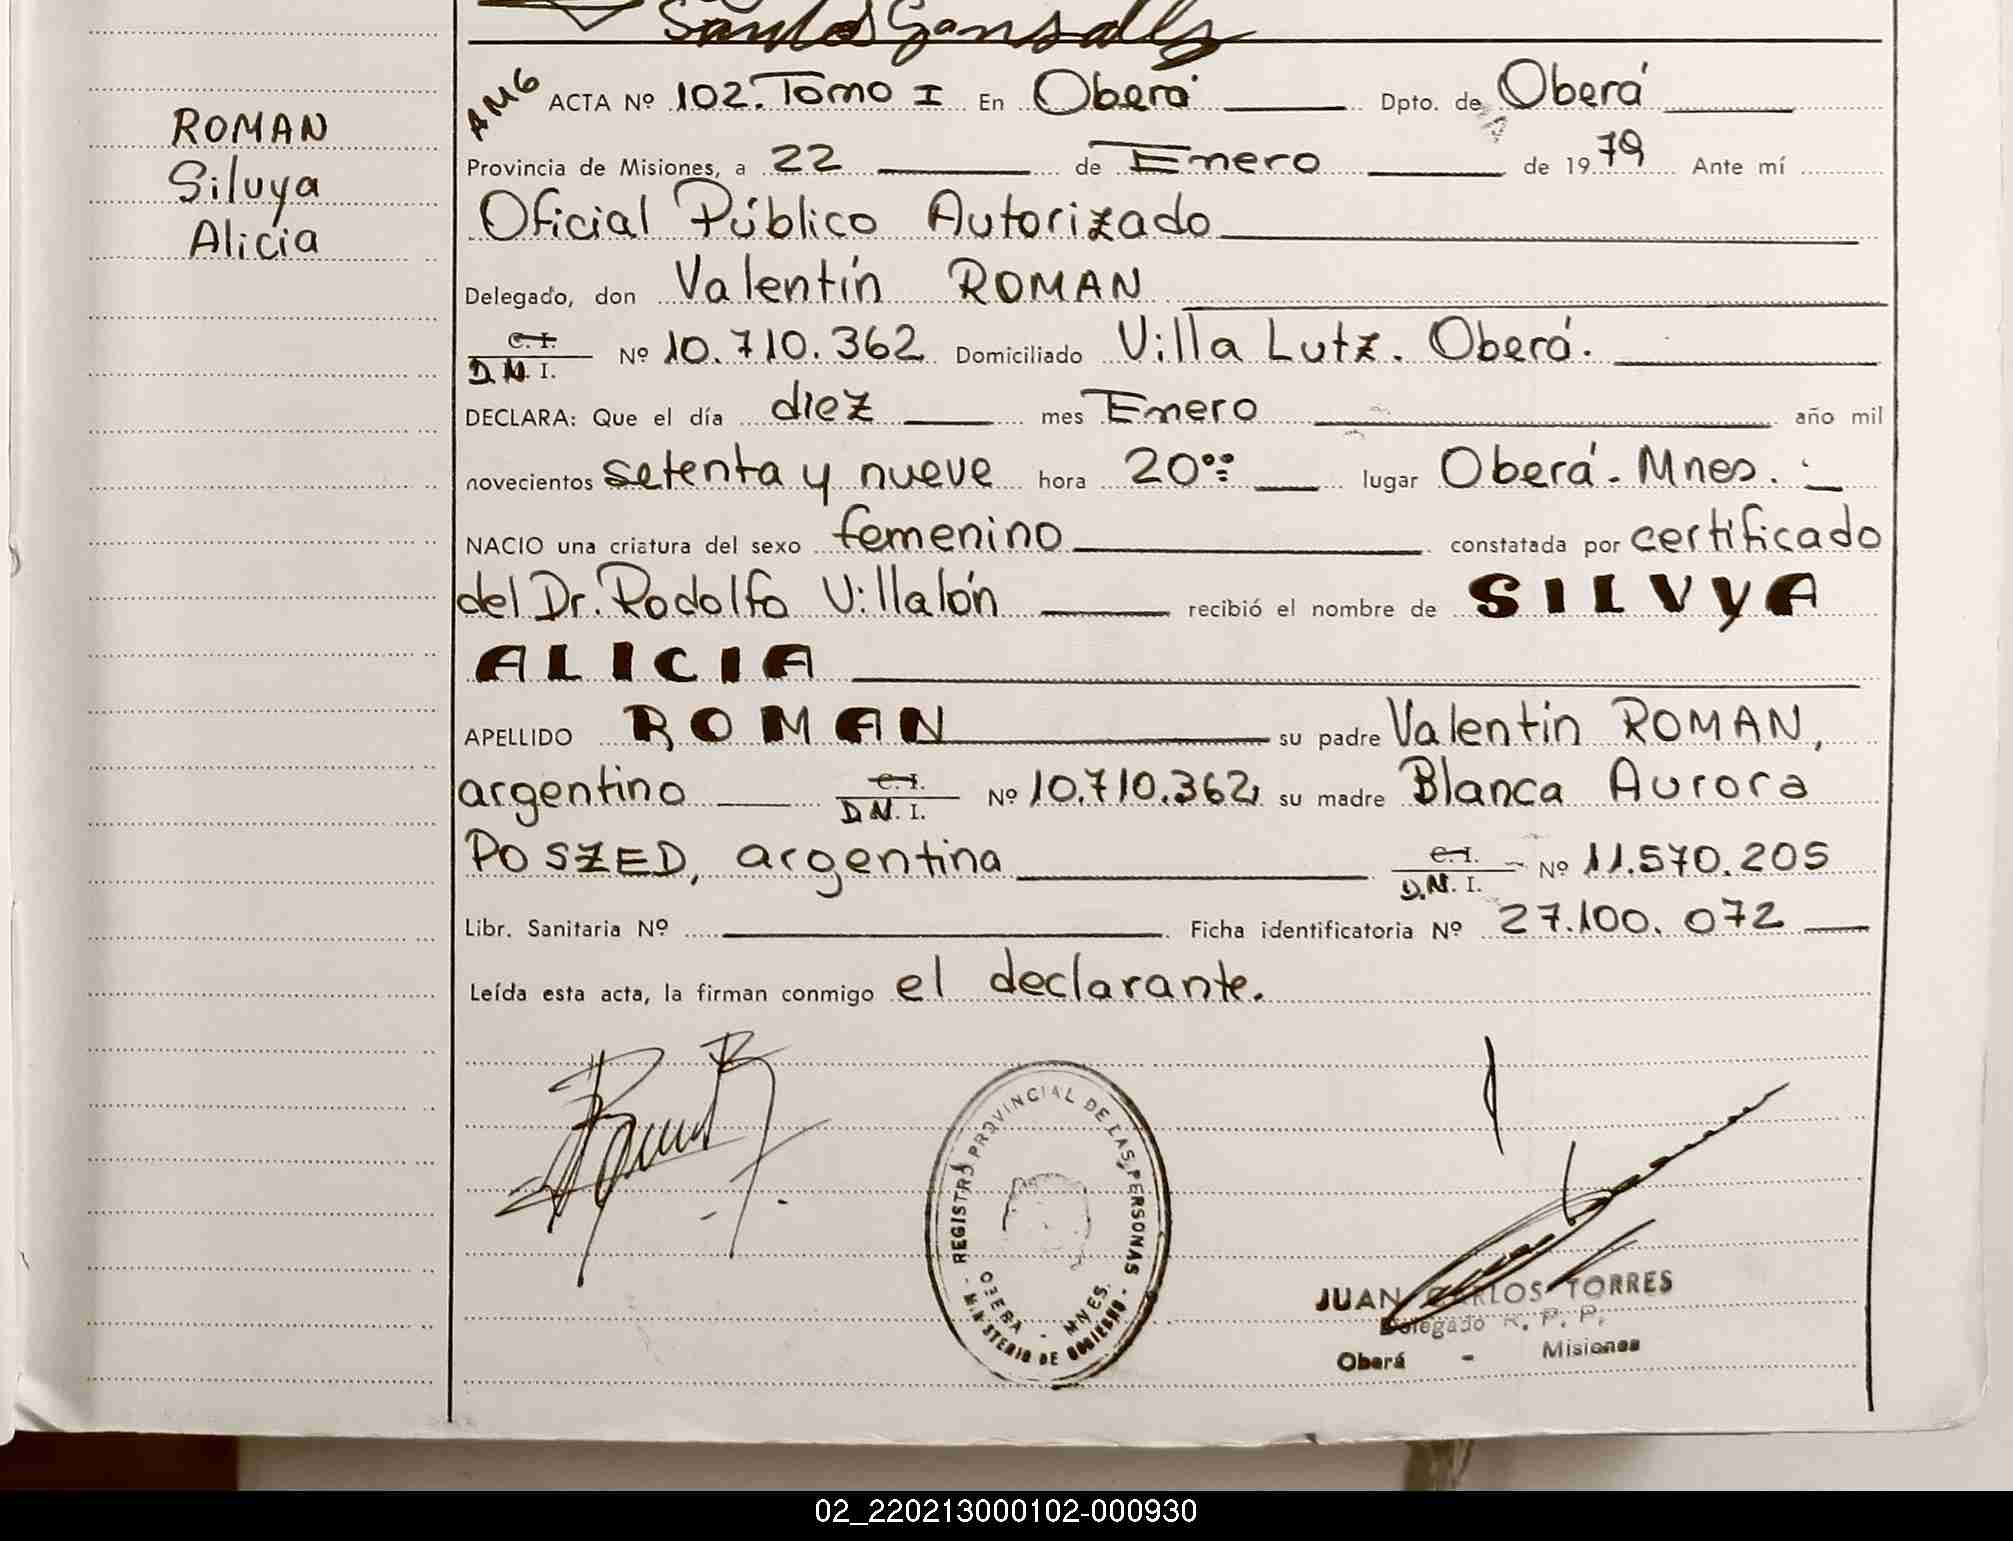 Santos Gonsales
ROMAN
Siluya
Alicia
AMG
ACTA Nº 102. Tomo I En Oberá Dpto. de Oberá
Provincia de Misiones, a 22 de Enero de 1979 Ante mí
Oficial Público Autorizado
Delegado, don Valentín ROMAN
C. I.
D.N. I. Nº 10.710.362 Domiciliado Villa Lutz. Oberá.
DECLARA: Que el día diez mes Enero año mil
novecientos setenta y nueve hora 20°° lugar Oberá. Mnes.
NACIO una criatura del sexo femenino constatada por certificado
del Dr. Rodolfo Villalón recibió el nombre de SILVYA
ALICIA
APELLIDO ROMAN su padre Valentin ROMAN,
argentino C. I. D.N. I. Nº 10.710.362, su madre Blanca Aurora
POSZED, argentina C. I. D.N. I. Nº 11.570.205
Libr. Sanitaria Nº Ficha identificatoria Nº 27.100.072
Leída esta acta, la firman conmigo el declarante.
REGISTRO PROVINCIAL DE LAS PERSONAS
OBERA - MNES.
- MINISTERIO DE GOBIERNO -
JUAN CARLOS TORRES
Delegado R. P. P.
Oberá - Misiones
02_220213000102-000930